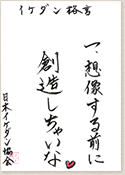 イケダン格言
一、想像する前に
創造しちゃいな
日本イケダン協会